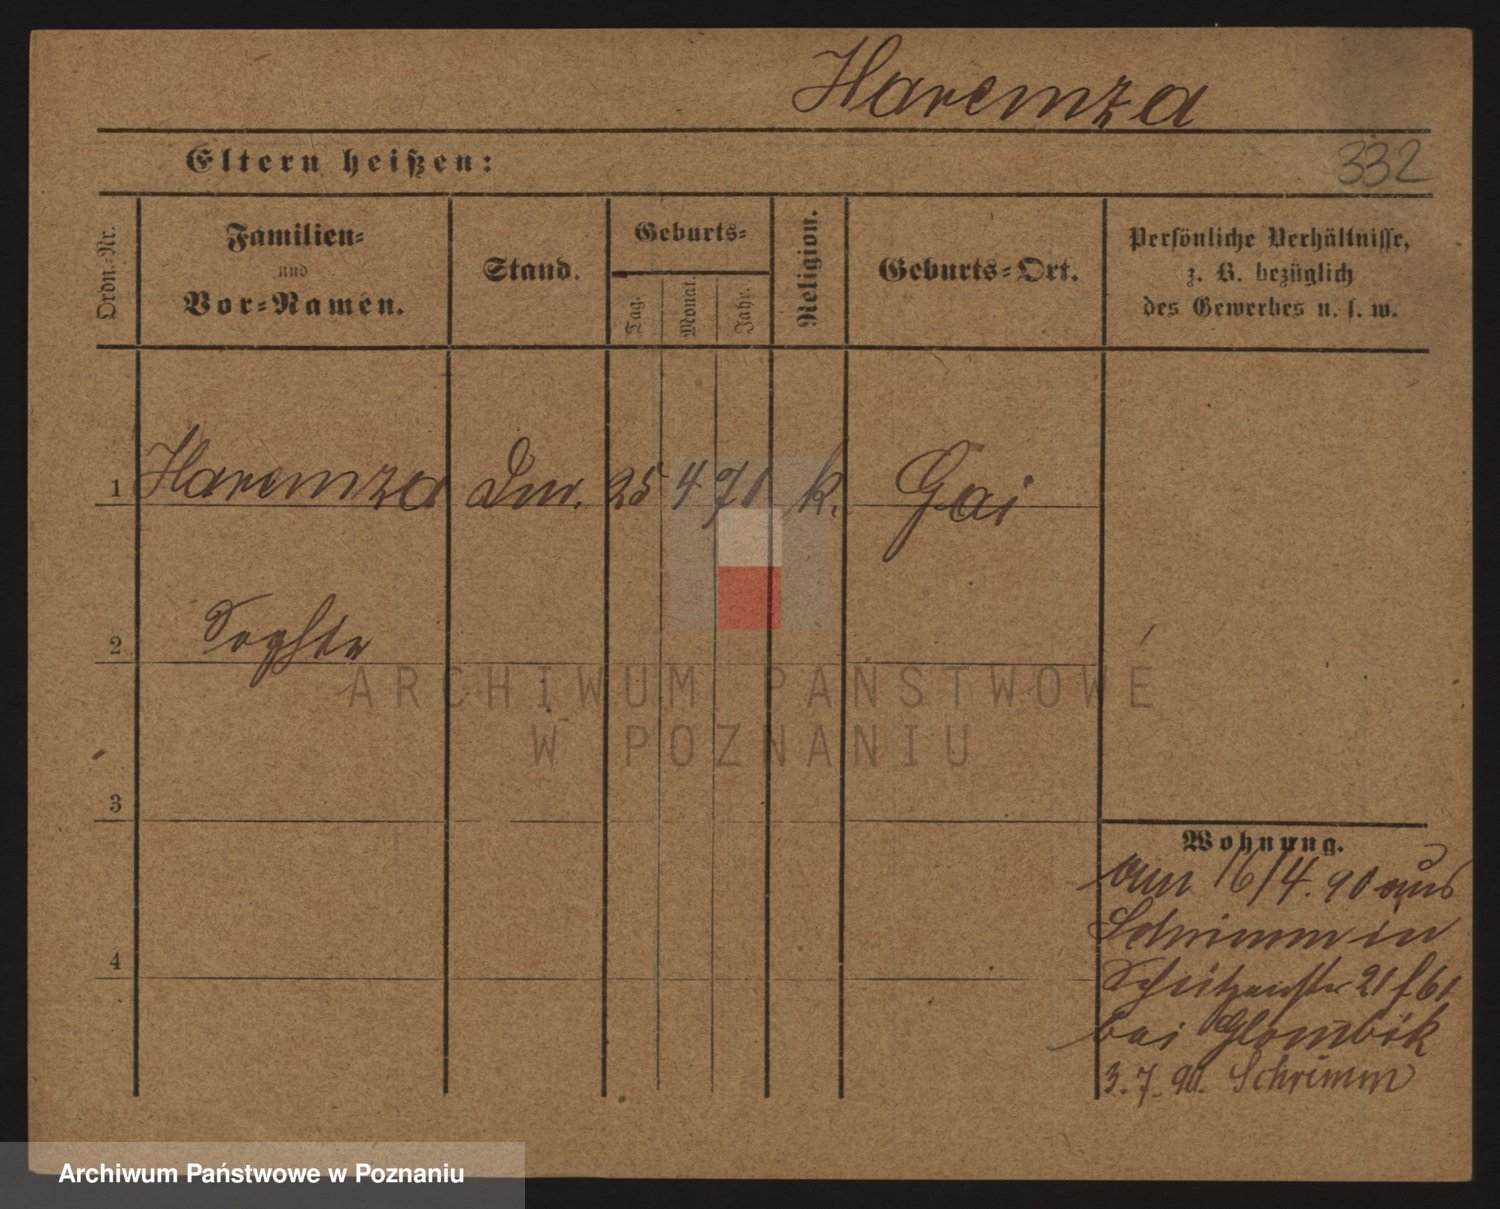 Haremza
Eltern heißen:
332
Ordn.-Nr.
Familien-
und
Vor-Namen.
Stand.
Geburts-
Tag.
Monat.
Jahr.
Religion.
Geburts-Ort.
Persönliche Verhältnisse,
z. B. bezüglich
des Gewerbes u. s. w.
1 Haremza 25 4 71 k. Gai
2 Sophie
3
4
Wohnung.
am 16/4. 90 aus
Schrimm in
Schützenstr 21
bei Glombik
3. 7. 90. Schrimm
ARCHIWUM PAŃSTWOWE
W POZNANIU
Archiwum Państwowe w Poznaniu